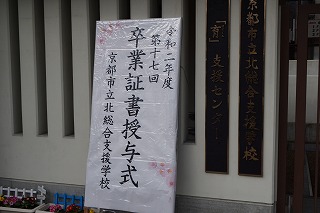 令和二年度
第十七回
卒業証書授与式
京都市立北総合支援学校
京都市立北総合支援学校
「育」支援センター